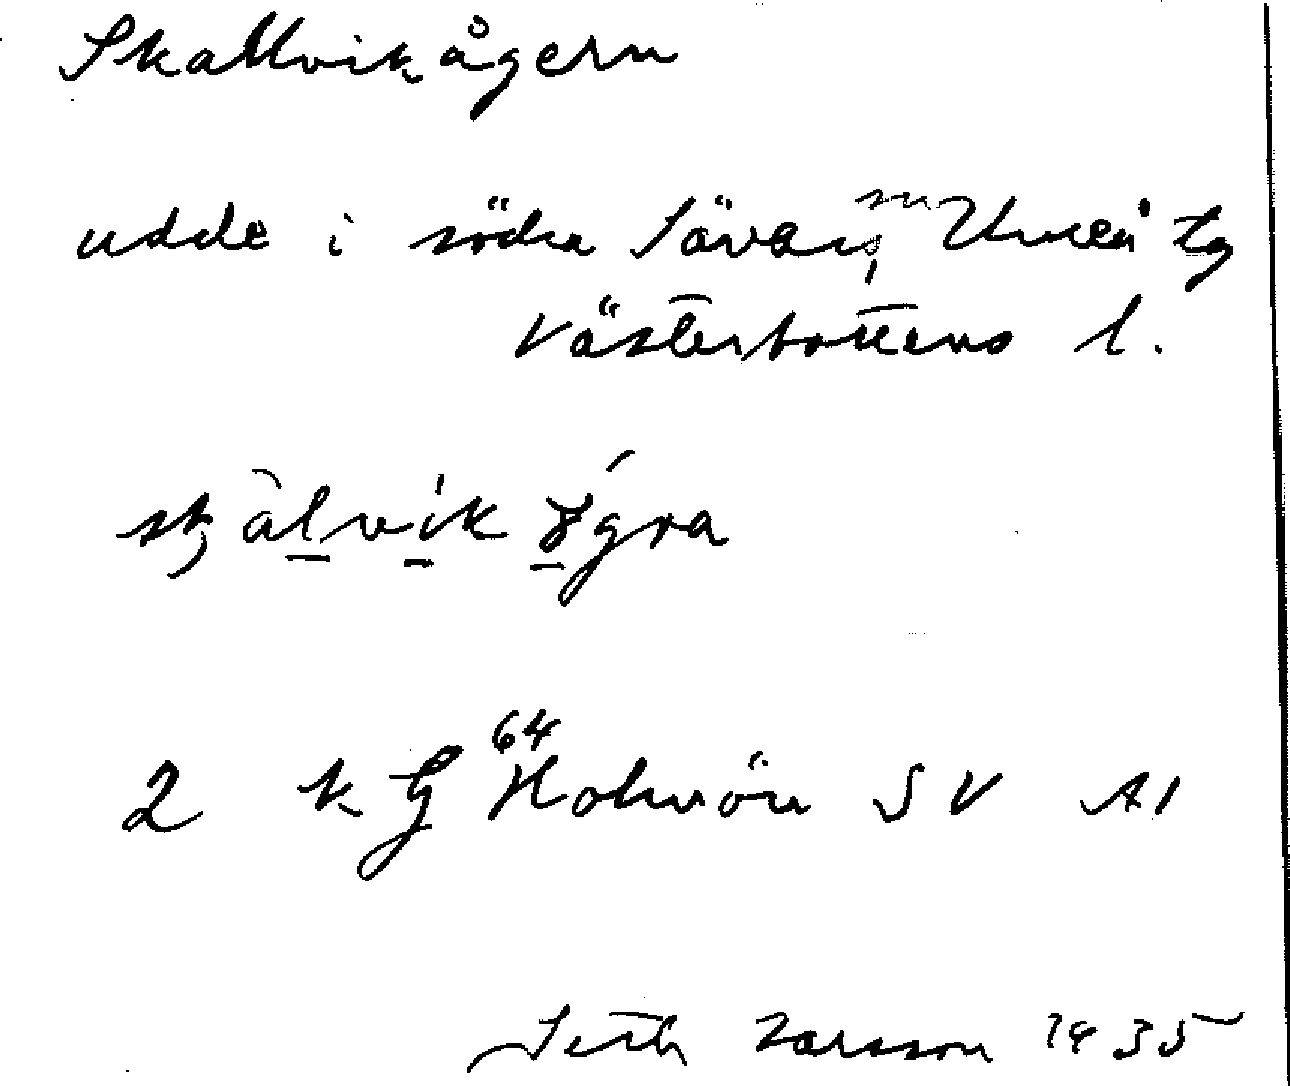 Skallvikågern
udde i södra Sävar, sn Umeå tg
Västerbottens l.
2 k G 64 Holmön SV A1
Seth Larsson 1935